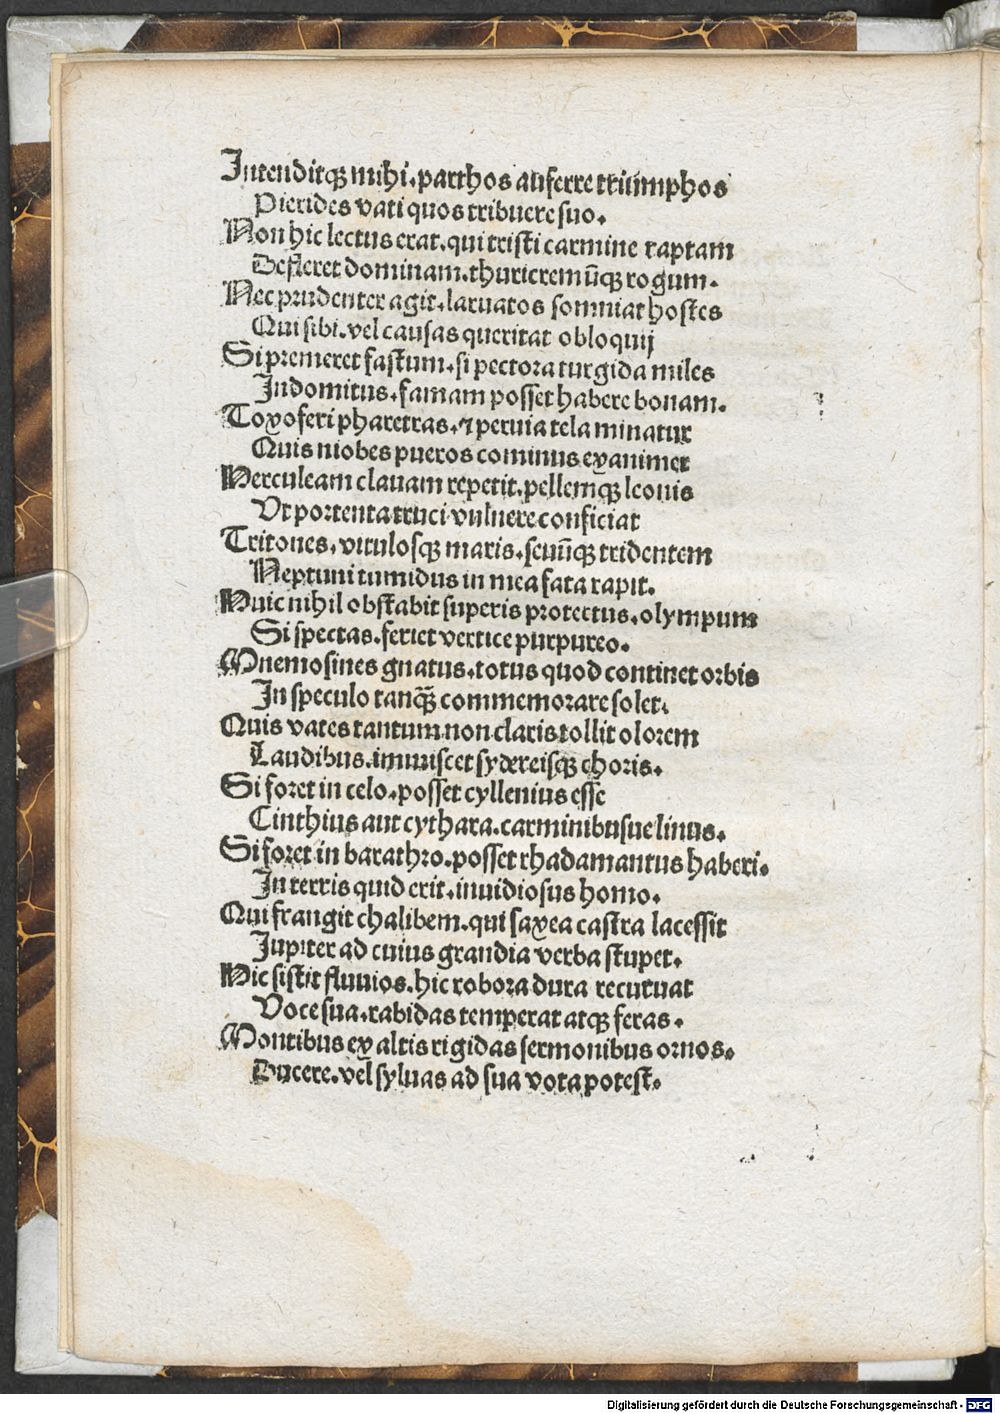 Intenditqꝫ mihi.parthos auferre triumphos
Pierides vati quos tribuere suo.
Non hic lectus erat.qui tristi carmine raptam
Defleret dominam.thuricremūqꝫ rogum.
Nec prudenter agit.laruatos somniat hostes
Qui sibi.vel causas queritat obloquij
Si premeret fastum.si pectora turgida miles
Indomitus.famam posset habere bonam.
Toxoferi pharetras.⁊ peruia tela minatur
Quis niobes pueros cominus exanimet
Herculeam clauam repetit.pellemqꝫ leonis
Vt portenta truci vulnere conficiat
Tritones.vitulosqꝫ maris.seuūqꝫ tridentem
Neptuni tumidus in mea fata rapit.
Huic nihil obstabit superis protectus.olympum
Si spectas.feriet vertice purpureo.
Mnemosines gnatus.totus quod continet orbis
In speculo tanqꝫ̄ commemorare solet.
Quis vates tantum non claris tollit olorem
Laudibus.immiscet sydereisqꝫ choris.
Si foret in celo.posset cyllenius esse
Cinthius aut cythara.carminibusue linus.
Si foret in barathro.posset rhadamantus haberi.
In terris quid erit.inuidiosus homo.
Qui frangit chalibem.qui saxea castra lacessit
Jupiter ad cuius grandia verba stupet.
Hic sistit fluuios.hic robora dura recuruat
Voce sua.rabidas temperat atqꝫ feras.
Montibus ex altis rigidas sermonibus ornos.
Ducere.vel syluas ad sua vota potest.
Digitalisierung gefördert durch die Deutsche Forschungsgemeinschaft - DFG